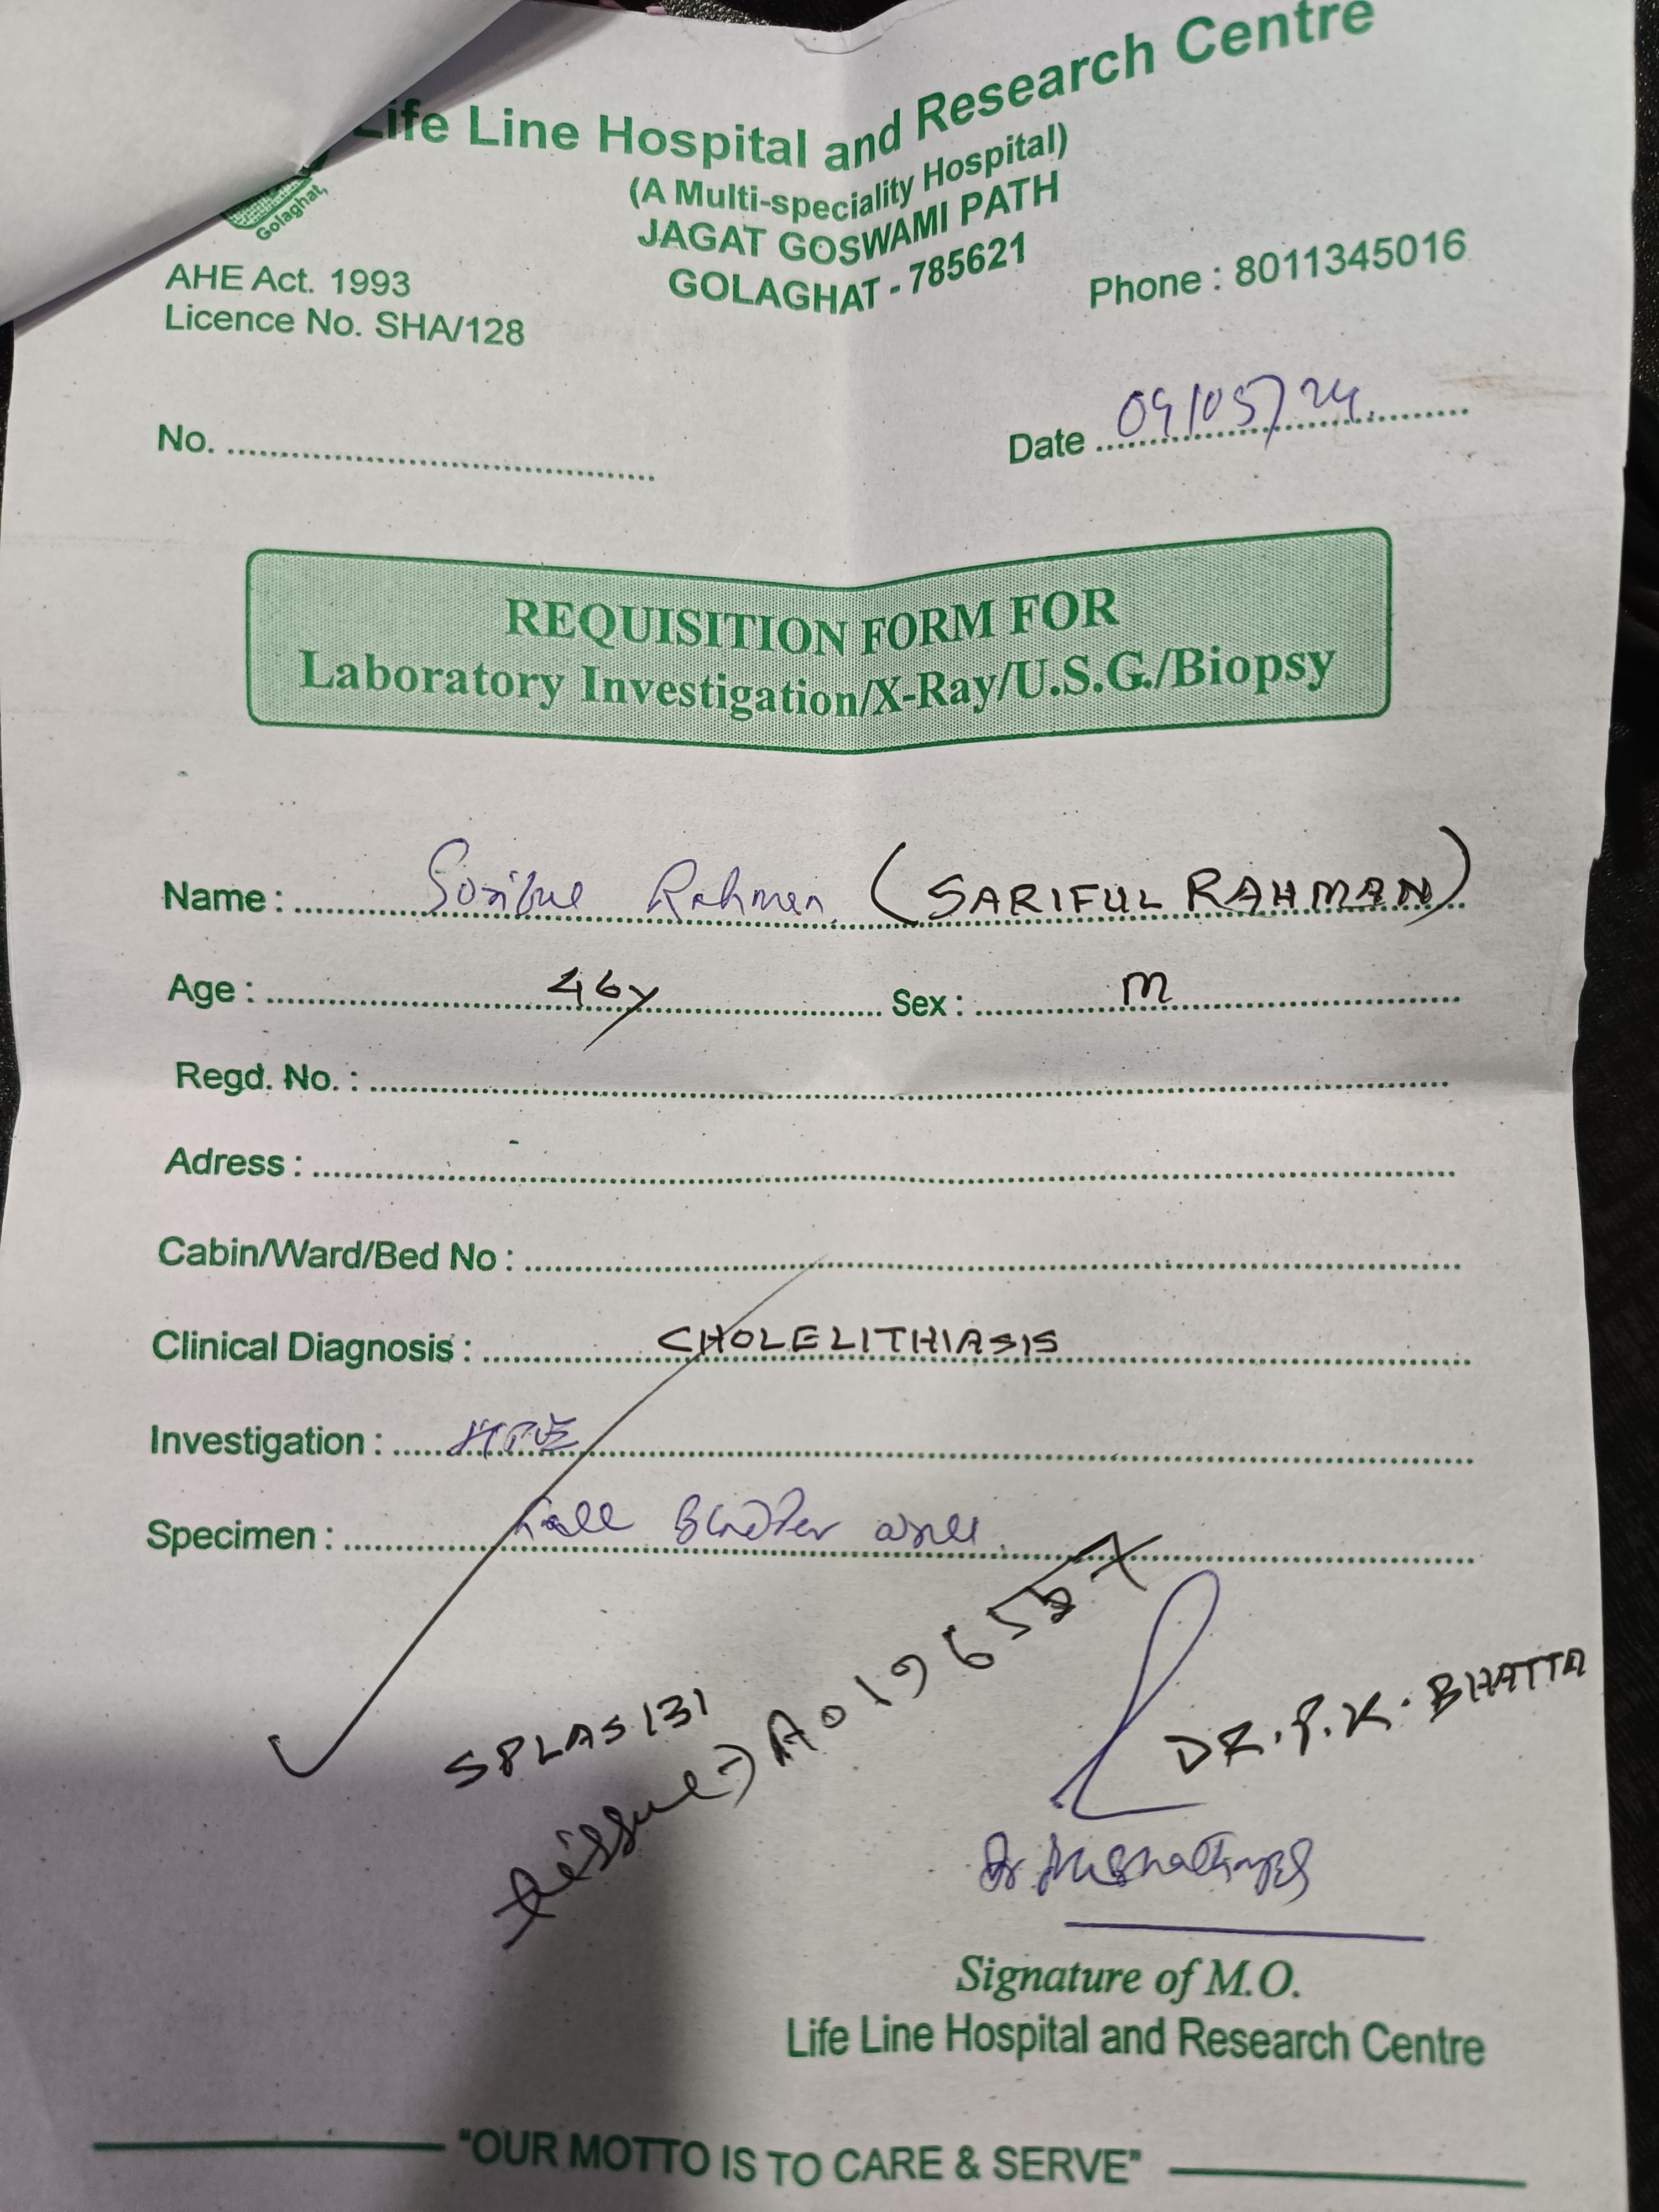 Life Line Hospital and Research Centre
(A Multi-speciality Hospital)
JAGAT GOSWAMI PATH
GOLAGHAT - 785621
Golaghat,
AHE Act. 1993
Licence No. SHA/128
Phone : 8011345016
No.
Date 09/05/24
REQUISITION FORM FOR
Laboratory Investigation/X-Ray/U.S.G./Biopsy
Name : Rahman (SARIFUL RAHMAN)
Age : 46y Sex : M
Regd. No. :
Adress :
Cabin/Ward/Bed No :
Clinical Diagnosis : CHOLELITHIASIS
Investigation : HPE
Specimen : Gall Bladder
SPLAS131
tissue → A0196557
DR. P. K. BHATTA
Signature of M.O.
Life Line Hospital and Research Centre
"OUR MOTTO IS TO CARE & SERVE"